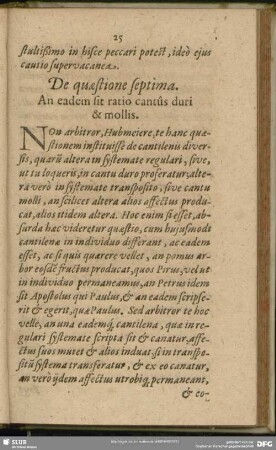 25
stultißimo in hisce peccari potest, ideò ejus
cautio supervacanea.
De quæstione septima.
An eadem sit ratio cantûs duri
& mollis.
NOn arbitror, Hubmeiere, te hanc quæ-
stionem instituisse de cantilenis diver-
sis, quarũ altera in systemate regulari, sive,
ut tu loqueris, in cantu duro proferatur, alte-
ra verò in systemate transposito, sive cantu
molli, an scilicet altera alios affectus produ-
cat, alios itidem altera. Hoc enim si esset, absur-
da hæc videretur quæstio, cum hujusmodi
cantilenæ in individuo differant, ac eadem
esset, ac si quis quærere vellet, an pomus ar-
bor eosdẽ fructus producat, quos Pirus, vel ut
in individuo permaneamus, an Petrus idem
sit Apostolus qui Paulus, & an eadem scripse-
rit & egerit, quæ Paulus. Sed arbitror te hoc
velle, an una eademq́; cantilena, quæ in re-
gulari systemate scripta sit & canatur, affe-
ctus suos mutet & alios induat, si in transpo-
sitũ systema transferatur, & ex eo canatur,
an verò ijdem affectus utrobiq́; permaneant,
& eo-
SLUB
DFG